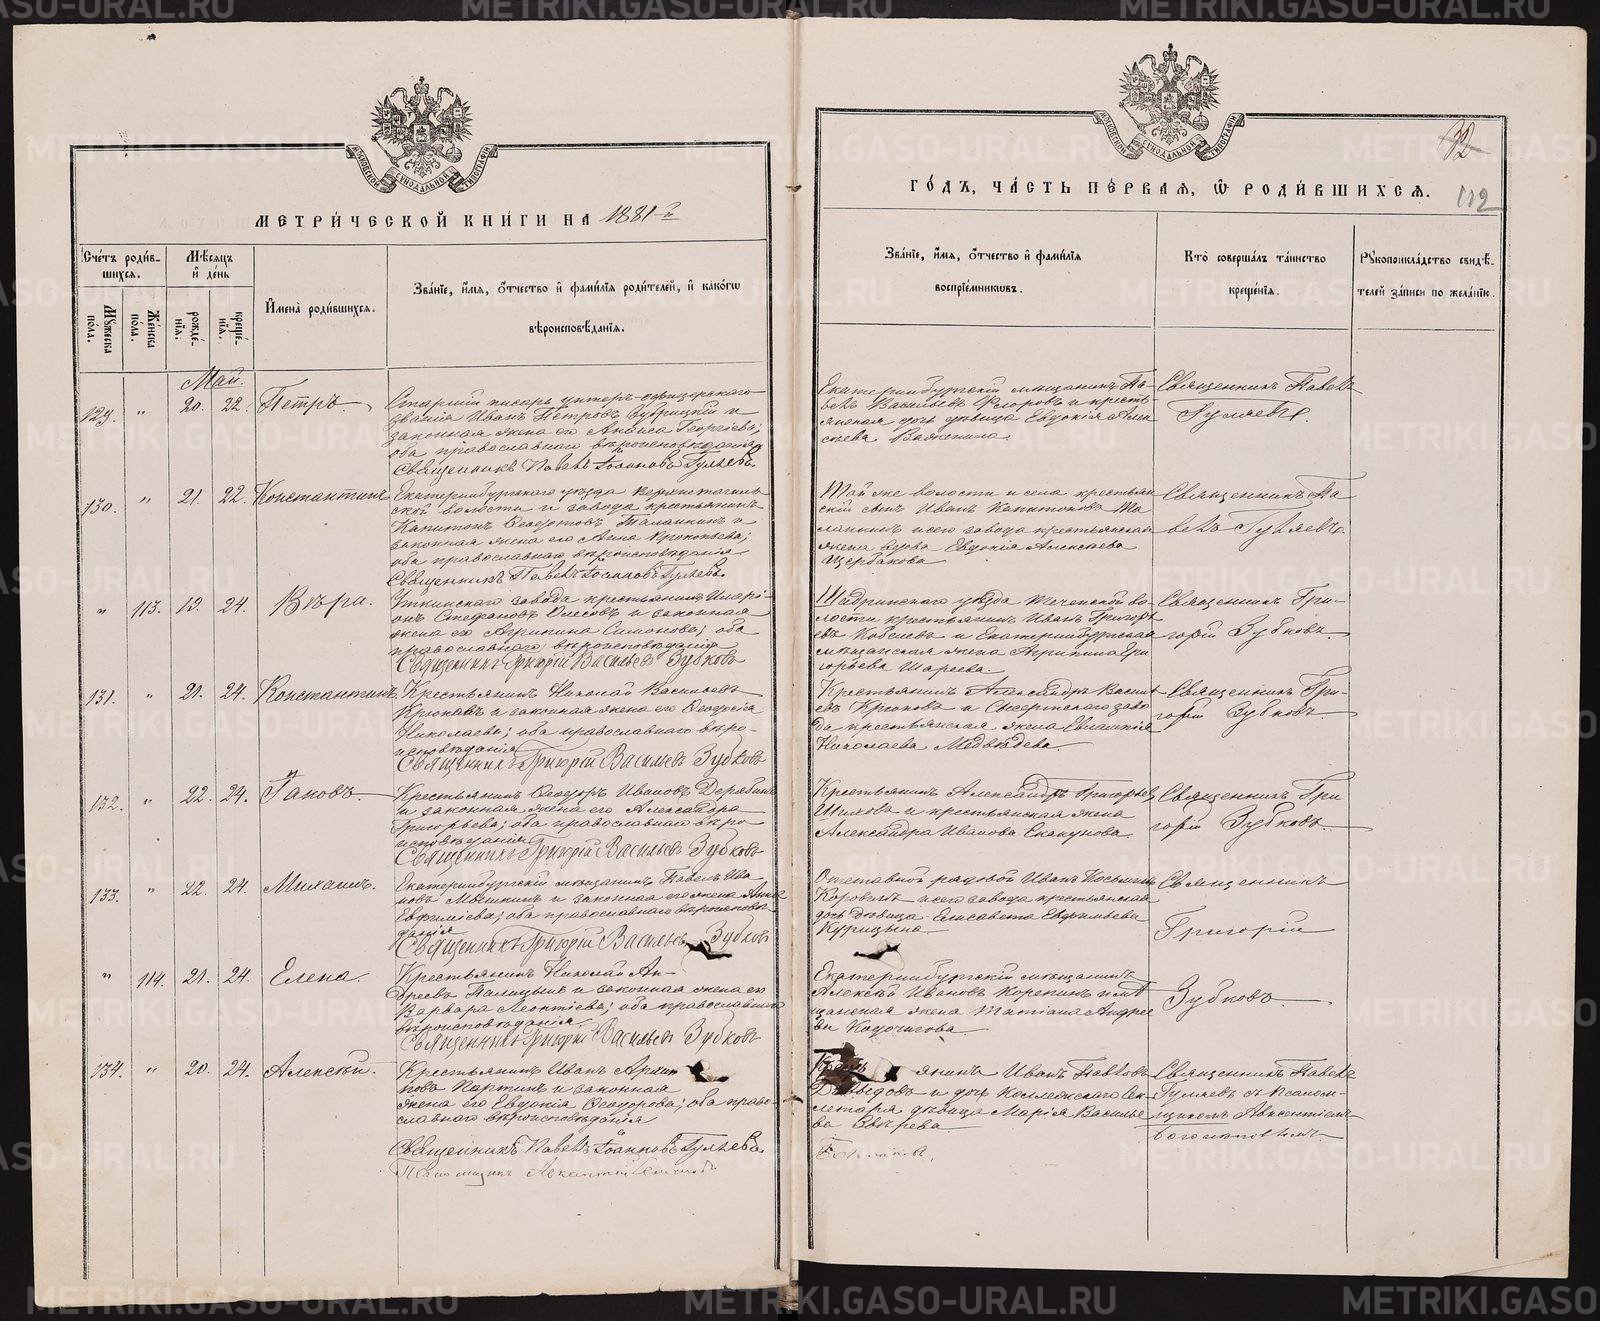 METRIKI.GASO-URAL.RU
МОСКОВСКОЙ СѴНОДАЛЬНОЙ ТИПОГРАФІИ
МЕТРИ́ЧЕСКОЙ КНИ́ГИ НА 1881й
Сче́тъ роди́в-
шихсѧ.
Мѣ́сѧцъ
и҆ де́нь
Мꙋ́жеска
пола.
Же́нска
пола.
рожде́-
нїѧ.
креще́-
нїѧ.
И҆мена̀ роди́вшихсѧ.
Зва́нїе, и҆́мѧ, ѻ҆́тчество и҆ фами́лїѧ роди́телей, и҆ како́гѡ
вѣроисповѣ́данїѧ.
Май.
129. " 20. 22. Петръ.
Старшій писарь унтеръ-офицерскаго
званія Иванъ Петровъ и
законная жена его Анѳиса Георгіева;
оба православнаго вѣроисповѣданія
Священникъ Павелъ Іоанновъ Гуляевъ.
130. " 21. 22. Константинъ
Екатеринбургскаго уѣзда Верхисетской
волости и завода крестьянинъ
Капитонъ Ѳедотовъ Таланкинъ и
законная жена его Анна Прокопьева;
оба православнаго вѣроисповѣданія
Священникъ Павелъ Іоанновъ Гуляевъ.
" 113. 19. 24. Вѣра.
Уткинскаго завода крестьянинъ Илари-
онъ Стефановъ и законная
жена его Агрипина Симонова; оба
православнаго вѣроисповѣданія
Священникъ Григорій Васильевъ Зубковъ
131. " 21. 24. Константинъ
Крестьянинъ Николай Васильевъ
Крюковъ и законная жена его Ѳеодосія
Николаева; оба православнаго вѣро-
исповѣданія
Священникъ Григорій Васильевъ Зубковъ
132. " 22. 24. Іаковъ.
Крестьянинъ Ѳеодоръ Ивановъ Дерябинъ
и законная жена его Александра
Григорьева; оба православнаго вѣро
исповѣданія
Священникъ Григорій Васильевъ Зубковъ
133. " 22. 24. Михаилъ.
Екатеринбургскій мѣщанинъ Павелъ Ива
новъ Мышкинъ и законная его жена Анна
Евфиміева; оба православнаго вѣроисповѣ
данія
Священникъ Григорій Васильевъ Зубковъ
" 114. 21. 24. Елена.
Крестьянинъ Николай Ан-
дреевъ Палицынъ и законная жена его
Варвара Леонтіева; оба православнаго
вѣроисповѣданія
Священникъ Григорій Васильевъ Зубковъ
134. " 20. 24. Алексѣй.
Крестьянинъ Иванъ
Партинъ и законная
жена его Евдокія Ѳеодорова; оба право-
славнаго вѣроисповѣданія
Священникъ Павелъ Іоанновъ Гуляевъ.
Псаломщикъ
МОСКОВСКОЙ СѴНОДАЛЬНОЙ ТИПОГРАФІИ
ГО́ДЪ, ЧА́СТЬ ПЕ́РВАЯ, Ѽ РОДИ́ВШИХСѦ.
112
Зва́нїе, и҆́мѧ, ѻ҆́тчество и҆ фами́лїѧ
воспрїе́мникѡвъ.
Кто̀ соверша́лъ та́инство
креще́нїѧ.
Рꙋкоприкла́дство свидѣ́-
телей за́писи по жела́нїю.
Екатеринбургскій мѣщанинъ Па-
велъ Васильевъ Флоровъ и кресть-
янская дочь дѣвица Евдокія Алек
сѣева
Священникъ Павелъ
Гуляевъ.
Той же волости и села крестьян
скій сынъ Иванъ Капитоновъ Та
ланкинъ и сего завода крестьянская
жена вдова Евдокія Алексѣева
Щербакова
Священникъ Па
велъ Гуляевъ.
Шадринскаго уѣзда Теченской во-
лости крестьянинъ Иванъ Григорь
евъ Кобелевъ и Екатеринбургская
мѣщанская жена Агрипина Гри
горьева
Священникъ Гри-
горій Зубковъ
Крестьянинъ Александръ Василь
евъ Крюковъ и Сысертскаго заво
да крестьянская жена Евлампія
Николаева Медвѣдева.
Священникъ Гри-
горій Зубковъ
Крестьянинъ Александръ Григорьевъ
Шиховъ и крестьянская жена
Александра Иванова
Священникъ Гри
горій Зубковъ.
Отставной рядовой Иванъ Косьминъ
и сего завода крестьянская
дочь дѣвица Елисавета Евфимьева
Курицына
Священникъ
Григорій
Екатеринбургскій мѣщанинъ
Алексѣй Ивановъ Корепинъ и мѣ
щанская жена Татіана Андрее
ва
Зубковъ.
янинъ Иванъ Павловъ
Давыдовъ и дочь Коллежскаго Сек-
летаря дѣвица Марія Василье
ва Звѣрева
Священникъ Павелъ
Гуляевъ съ Псалом-
щикомъ Авксентіемъ